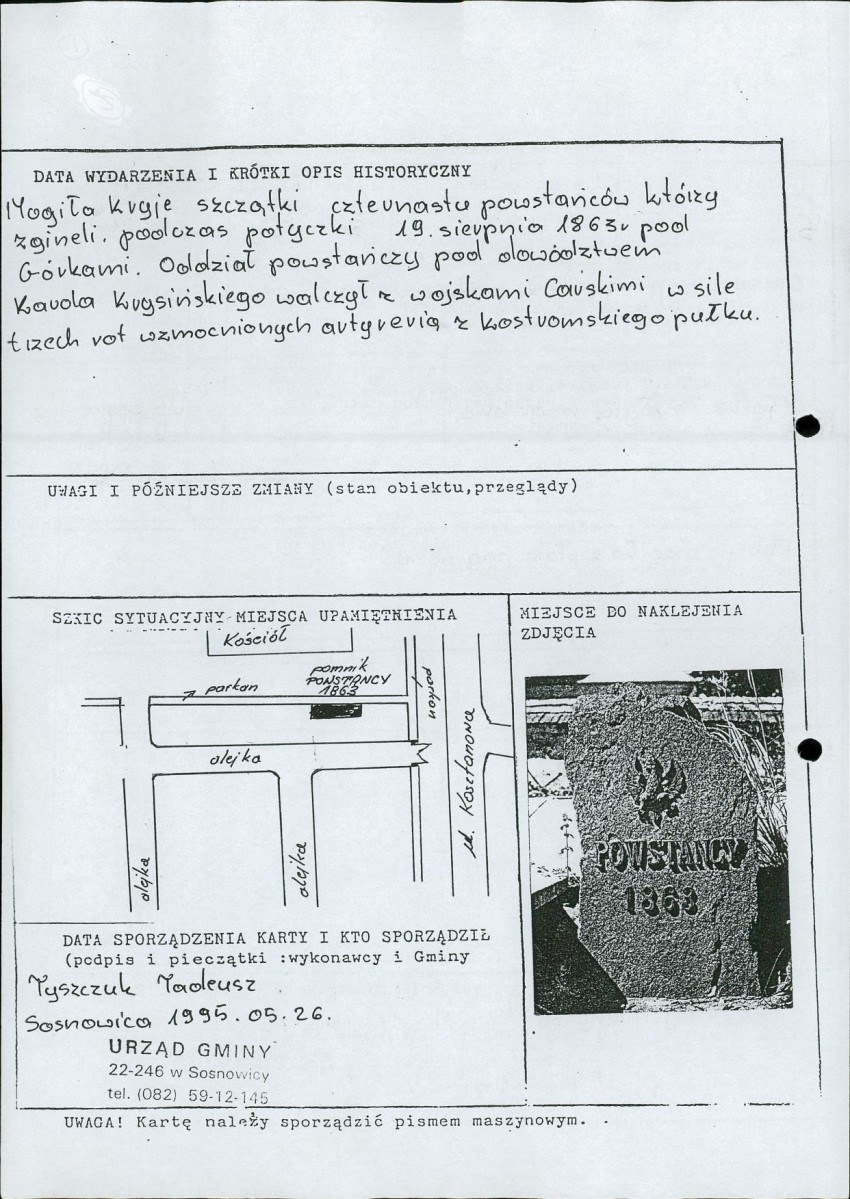 DATA WYDARZENIA I KRÓTKI OPIS HISTORYCZNY
Mogiła kryje szczątki czternastu powstańców którzy
zgineli. podczas potyczki 19. sierpnia 1863r pod
Górkami. Oddział powstańczy pod dowództwem
Karola Krysińskiego walczył z wojskami Carskimi w sile
trzech rot wzmocnionych artyrerią z kostromskiego pułku.
UWAGI I PÓŹNIEJSZE ZMIANY (stan obiektu,przeglądy)
SZKIC SYTUACYJNY MIEJSCA UPAMIĘTNIENIA
Kościół
parkan
pomnik
POWSTAŃCY
1863
alejka
alejka
alejka
MIEJSCE DO NAKLEJENIA
ZDJĘCIA
POWSTAŃCY
1863
DATA SPORZĄDZENIA KARTY I KTO SPORZĄDZIŁ
(podpis i pieczątki :wykonawcy i Gminy
Tyszczuk Tadeusz
Sosnowica 1995.05.26.
URZĄD GMINY
22-246 w Sosnowicy
tel. (082) 59-12-145
UWAGA! Kartę należy sporządzić pismem maszynowym.